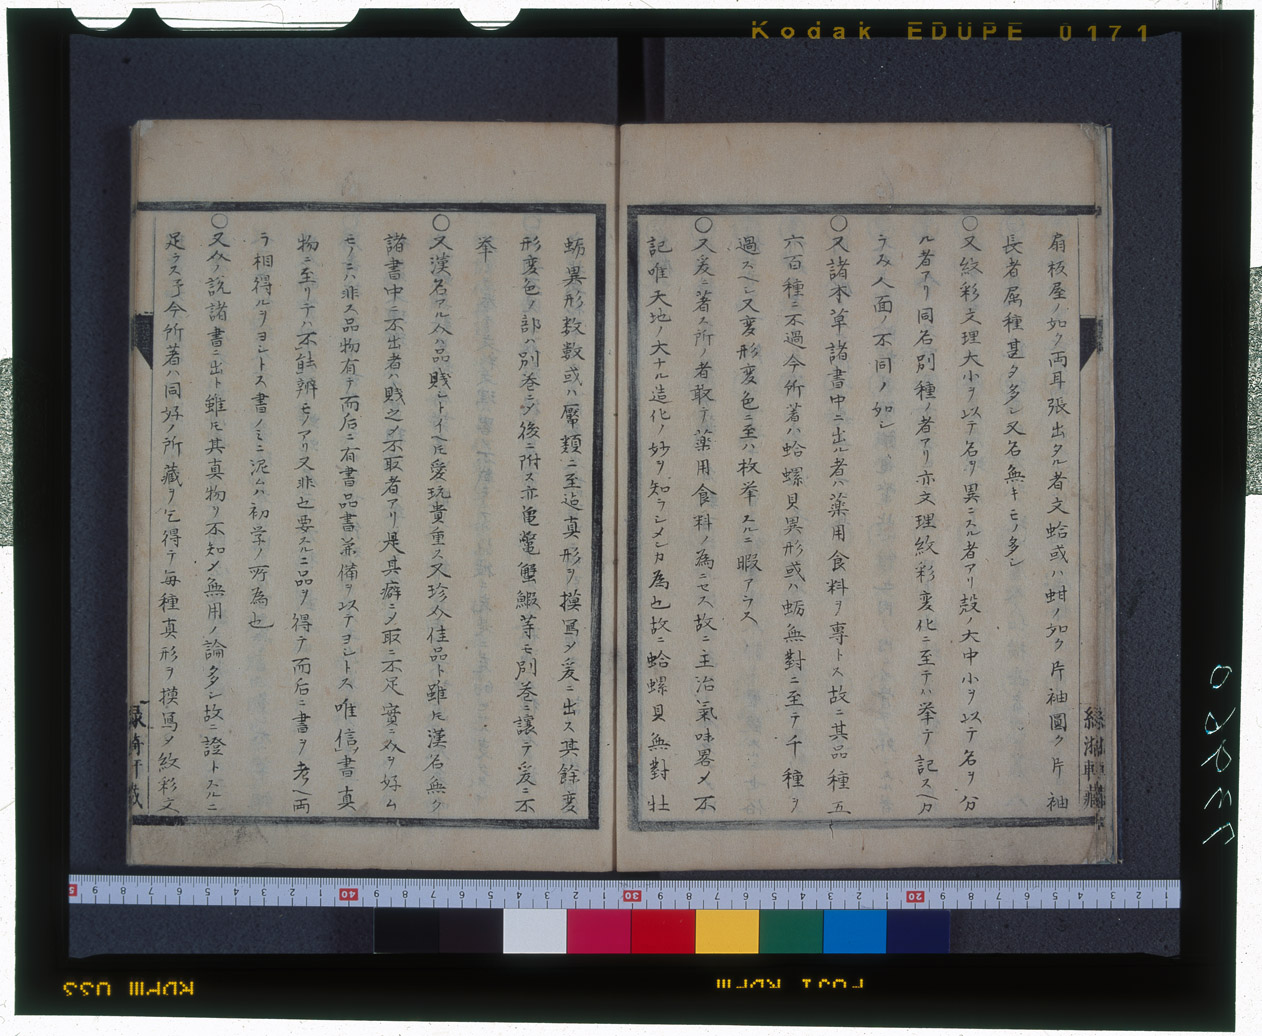 Kodak EDUPE 0171
扇板屋ノ如ク両耳張出タル者文蛤或ハ蚶ノ如ク片袖圓ク片袖
長者属種甚タ多シ又名無キモノ多シ
〇又紋彩文理大小ヲ以テ名ヲ異ニスル者アリ殻ノ大中小ヲ以テ名ヲ分
ル者アリ同名別種ノ者アリ亦文理紋彩変化ニ至テハ挙テ記スヘカ
ラス人面ノ不同ノ如シ
〇又諸本草諸書中ニ出ル者ハ薬用食料ヲ専トス故ニ其品種五
六百種ニ不過今所著ハ蛤螺貝異形或ハ蛎無對ニ至テ千種ヲ
過スヘシ又変形変色ニ至ハ枚挙スルニ暇アラス
〇又爰ニ著ス所ノ者敢テ薬用食料ノ為ニセス故ニ主治氣味畧メ不
記唯天地ノ大ナル造化ノ妙ヲ知ラシメンカ為也故ニ蛤螺貝無對牡
蛎異形数数或ハ靥類ニ至迠真形ヲ摸寫メ爰ニ出ス其餘変
形変色ノ部ハ別巻ニメ後ニ附ス亦亀鼈蟹鰕等モ別巻ニ讓テ爰ニ不
挙
〇又漢名アル介ハ品賤シトイヘ𪜈愛玩貴重ス又珍介佳品ト雖𪜈漢名無ク
諸書中ニ不出者ハ賤之メ不取者アリ是其癖ニメ取ニ不足實ニ介ヲ好ム
モノニハ非ス品物有テ而后ニ有書品書兼備ヲ以テヨシトス唯信書真
物ニ至リテハ不能辨モノアリ又非也要スルニ品ヲ得テ而后ニ書ヲ考ヘ両
ラ相得ルヲヨシトス書ノミニ泥ムハ初学ノ所為也
〇又今ノ説諸書ニ出ト雖𪜈其真物ヲ不知メ無用ノ論多シ故ニ證トスルニ
足ラス予今所著ハ同好ノ所藏ヲ乞得テ毎種真形ヲ摸寫メ紋彩文